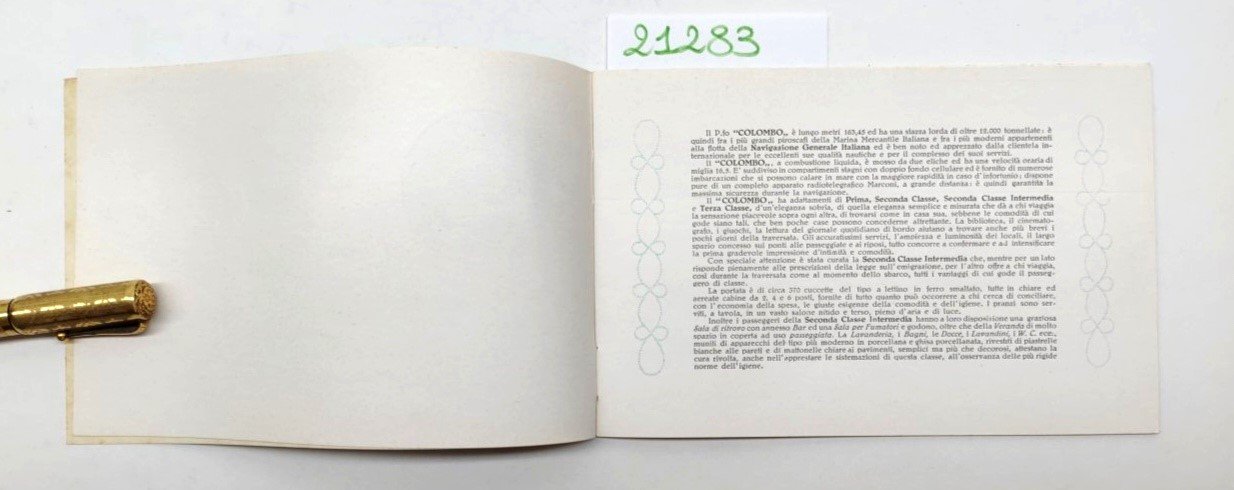 21283
Il P.fo "COLOMBO„ è lungo metri 163,45 ed ha una stazza lorda di oltre 12.000 tonnellate: è
quindi fra i più grandi piroscafi della Marina Mercantile Italiana e fra i più moderni appartenenti
alla flotta della Navigazione Generale Italiana ed è ben noto ed apprezzato dalla clientela in-
ternazionale per le eccellenti sue qualità nautiche e per il complesso dei suoi servizi.
Il "COLOMBO„, a combustione liquida, è mosso da due eliche ed ha una velocità oraria di
miglia 16,5. E' suddiviso in compartimenti stagni con doppio fondo cellulare ed è fornito di numerose
imbarcazioni che si possono calare in mare con la maggiore rapidità in caso d'infortunio; dispone
pure di un completo apparato radiotelegrafico Marconi, a grande distanza: è quindi garantita la
massima sicurezza durante la navigazione.
Il "COLOMBO„ ha adattamenti di Prima, Seconda Classe, Seconda Classe Intermedia
e Terza Classe, d'un'eleganza sobria, di quella eleganza semplice e misurata che dà a chi viaggia
la sensazione piacevole sopra ogni altra, di trovarsi come in casa sua, sebbene le comodità di cui
gode siano tali, che ben poche case possono concederne altrettante. La biblioteca, il cinemato-
grafo, i giuochi, la lettura del giornale quotidiano di bordo aiutano a trovare anche più brevi i
pochi giorni della traversata. Gli accuratissimi servizi, l'ampiezza e luminosità dei locali, il largo
spazio concesso sui ponti alle passeggiate e ai riposi, tutto concorre a confermare e ad intensificare
la prima gradevole impressione d'intimità e comodità.
Con speciale attenzione è stata curata la Seconda Classe Intermedia che, mentre per un lato
risponde pienamente alle prescrizioni della legge sull'emigrazione, per l'altro offre a chi viaggia,
così durante la traversata come al momento dello sbarco, tutti i vantaggi di cui gode il passeg-
gero di classe.
La portata è di circa 370 cuccette del tipo a lettino in ferro smaltato, tutte in chiare ed
aereate cabine da 2, 4 e 6 posti, fornite di tutto quanto può occorrere a chi cerca di conciliare,
con l'economia della spesa, le giuste esigenze della comodità e dell'igiene. I pranzi sono ser-
viti, a tavola, in un vasto salone nitido e terso, pieno d'aria e di luce.
Inoltre i passeggeri della Seconda Classe Intermedia hanno a loro disposizione una graziosa
Sala di ritrovo con annesso Bar ed una Sala per Fumatori e godono, oltre che della Veranda di molto
spazio in coperta ad uso passeggiata. La Lavanderia, i Bagni, le Docce, i Lavandini, i W. C. ecc.,
muniti di apparecchi del tipo più moderno in porcellana e ghisa porcellanata, rivestiti di piastrelle
bianche alle pareti e di mattonelle chiare ai pavimenti, semplici ma più che decorosi, attestano la
cura rivolta, anche nell'apprestare le sistemazioni di questa classe, all'osservanza delle più rigide
norme dell'igiene.